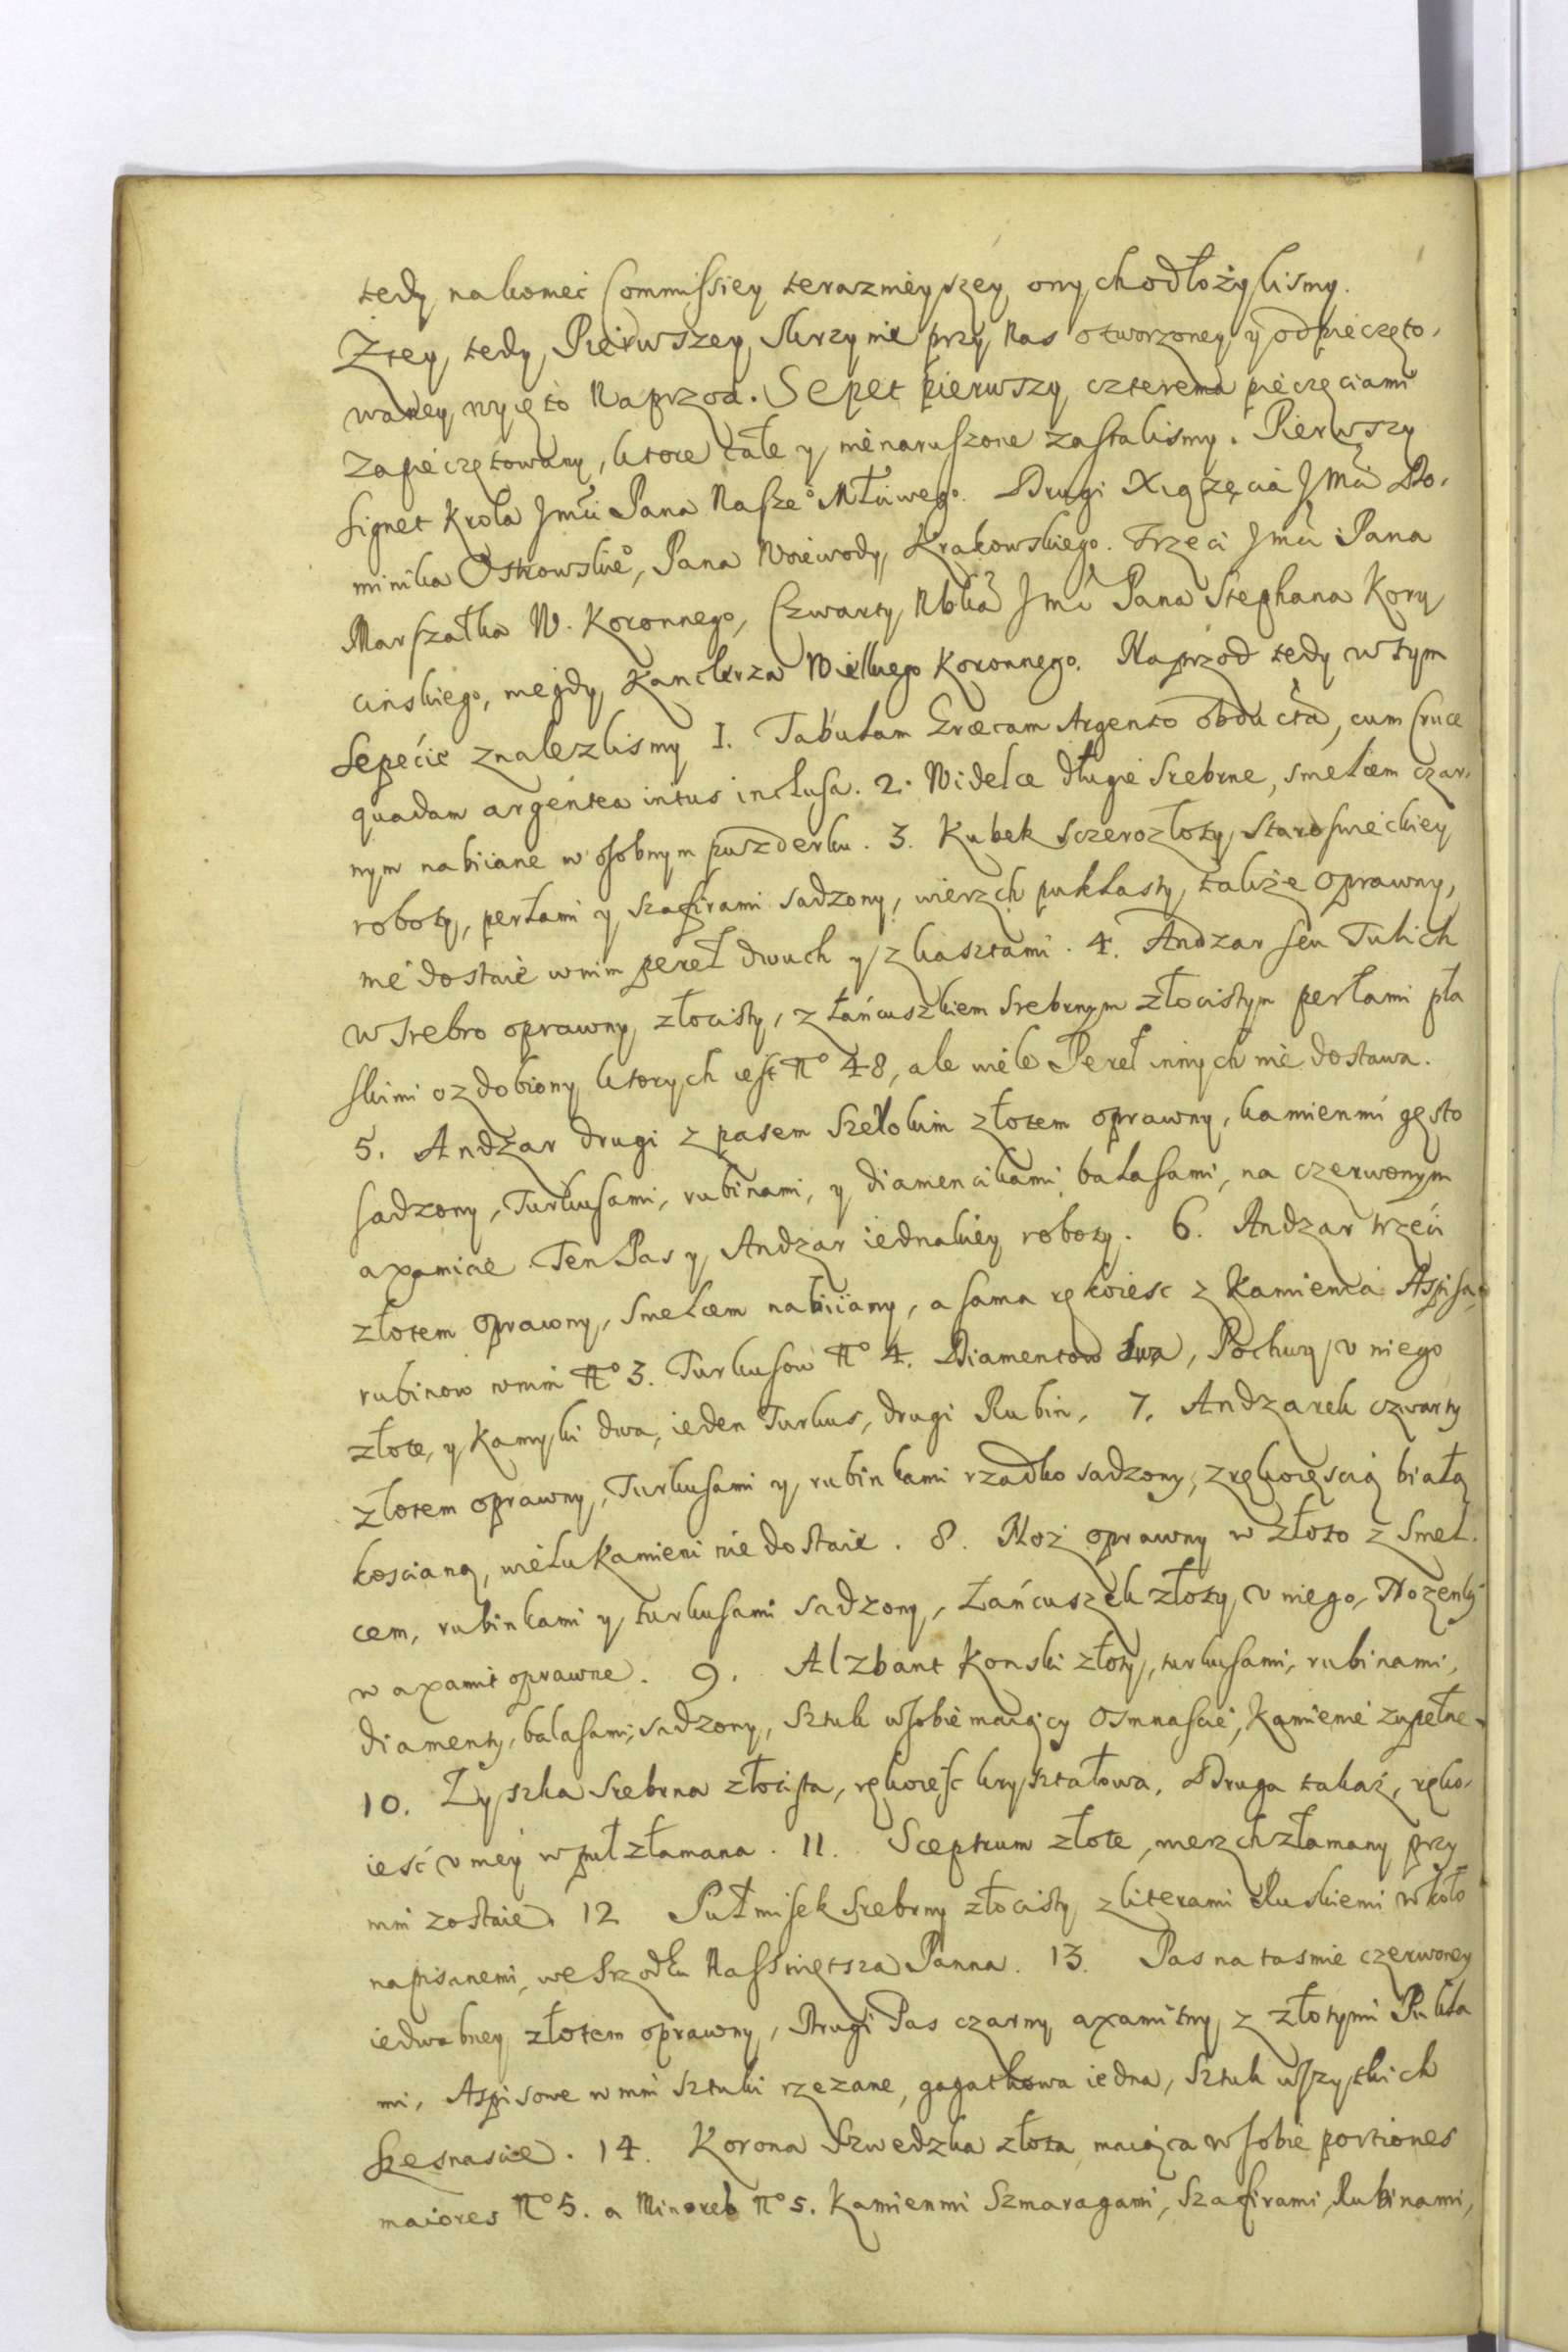 tedy na koniec Commissiey teraznieyszey onych odłożylismy.
Z tey tedy Pierwszey skrzynie przy Nas otworzoney y odpieczęto,
waney wyięto Naprzod. Sepet pierwszy czterema pieczęciami
zapieczętowany, ktore całe y nienaruszone zastalismy. Pierwszy
signet Krola Jmći Pana Naszeo Młciwego. Drugi Xiążęcia JMći Do,
minika Ostrowskieo, Pana Woiewody Krakowskiego. Trzeci Jmći Pana
Marszałka W. Koronnego, Czwarty Nbka Jmći Pana Stephana Kory
cinskiego, niegdy Kanclerza Wielkiego Koronnego. Naprzod tedy w tym
Sepećie znalezlismy 1. Tabulam Graecam Argento obducta, cum Cruce
quadam argentea intus inclusa. 2. Widelce długie srebrne, smelcem czar,
nym nabiiane w osobnym puzderku. 3. Kubek sczerozłoty staroswieckiey
roboty, perłami y szafirami sadzony, wierzch puklasty, także oprawny,
nie dostaie w nim pereł dwuch y z kasztami. 4. Andzar seu Tulich
w srebro oprawny złocisty, z łańcuszkiem srebrnym złocistym perłami pła
skimi ozdobiony ktorych iest No 48, ale wiele Pereł innych nie dostawa.
5. Andzar drugi z pasem szerokim złotem oprawny, kamienmi gęsto
sadzony, Turkusami, rubinami, y diamencikami balasami, na czerwonym
axamicie Ten Pas y Andzar iednakiey roboty. 6. Andzar trzeći
złotem oprawny, smelcem nabiiany, a sama rękoiesc z Kamienia Aspisa,
rubinow w nim No 3. Turkusow No 4. Diamentow dwa, Pochwy v niego
złote, y Kamyki dwa, ieden Turkus, drugi Rubin, 7. Andzarek czwarty
złotem oprawny, Turkusami y rubinkami rzadko sadzony, z rękoięscią białą
koscianą, wielu Kamieni nie dostaie. 8. Noż oprawny w złoto z smel.
cem, rubinkami y turkusami sadzony, Łańcuszek złoty v niego, Nozenki
w axamit oprawne. 9. Alzbant Konski złoty, turkusami, rubinami,
diamenty, balasami, sadzony, sztuk w sobie maiący osmnascie, Kamienie zupełne.
10. Łyszka srebrna złocista, rękoieśc krysztalowa. Druga takaż, ręko,
ieść v niey w puł złamana. 11. Sceptrum złote, wierzch złamany przy
nim zostaie. 12 Pułmisek srebrny złocisty z literami Ruskiemi wkoło
napisanemi, we srzodku Nasswiętsza Panna. 13. Pas na tasmie czerwoney
iedwabney złotem oprawny, Drugi Pas czarny axamitny z złotymi Pukla
mi, Aspisowe w nim sztuki rzezane, gagatkowa iedna, sztuk wszytkich
szesnascie. 14. Korona Szwedzka złota maiąca w sobie portiones
maiores No 5. a Minores No 5. Kamienmi Szmaragami, Szafirami, Rubinami,